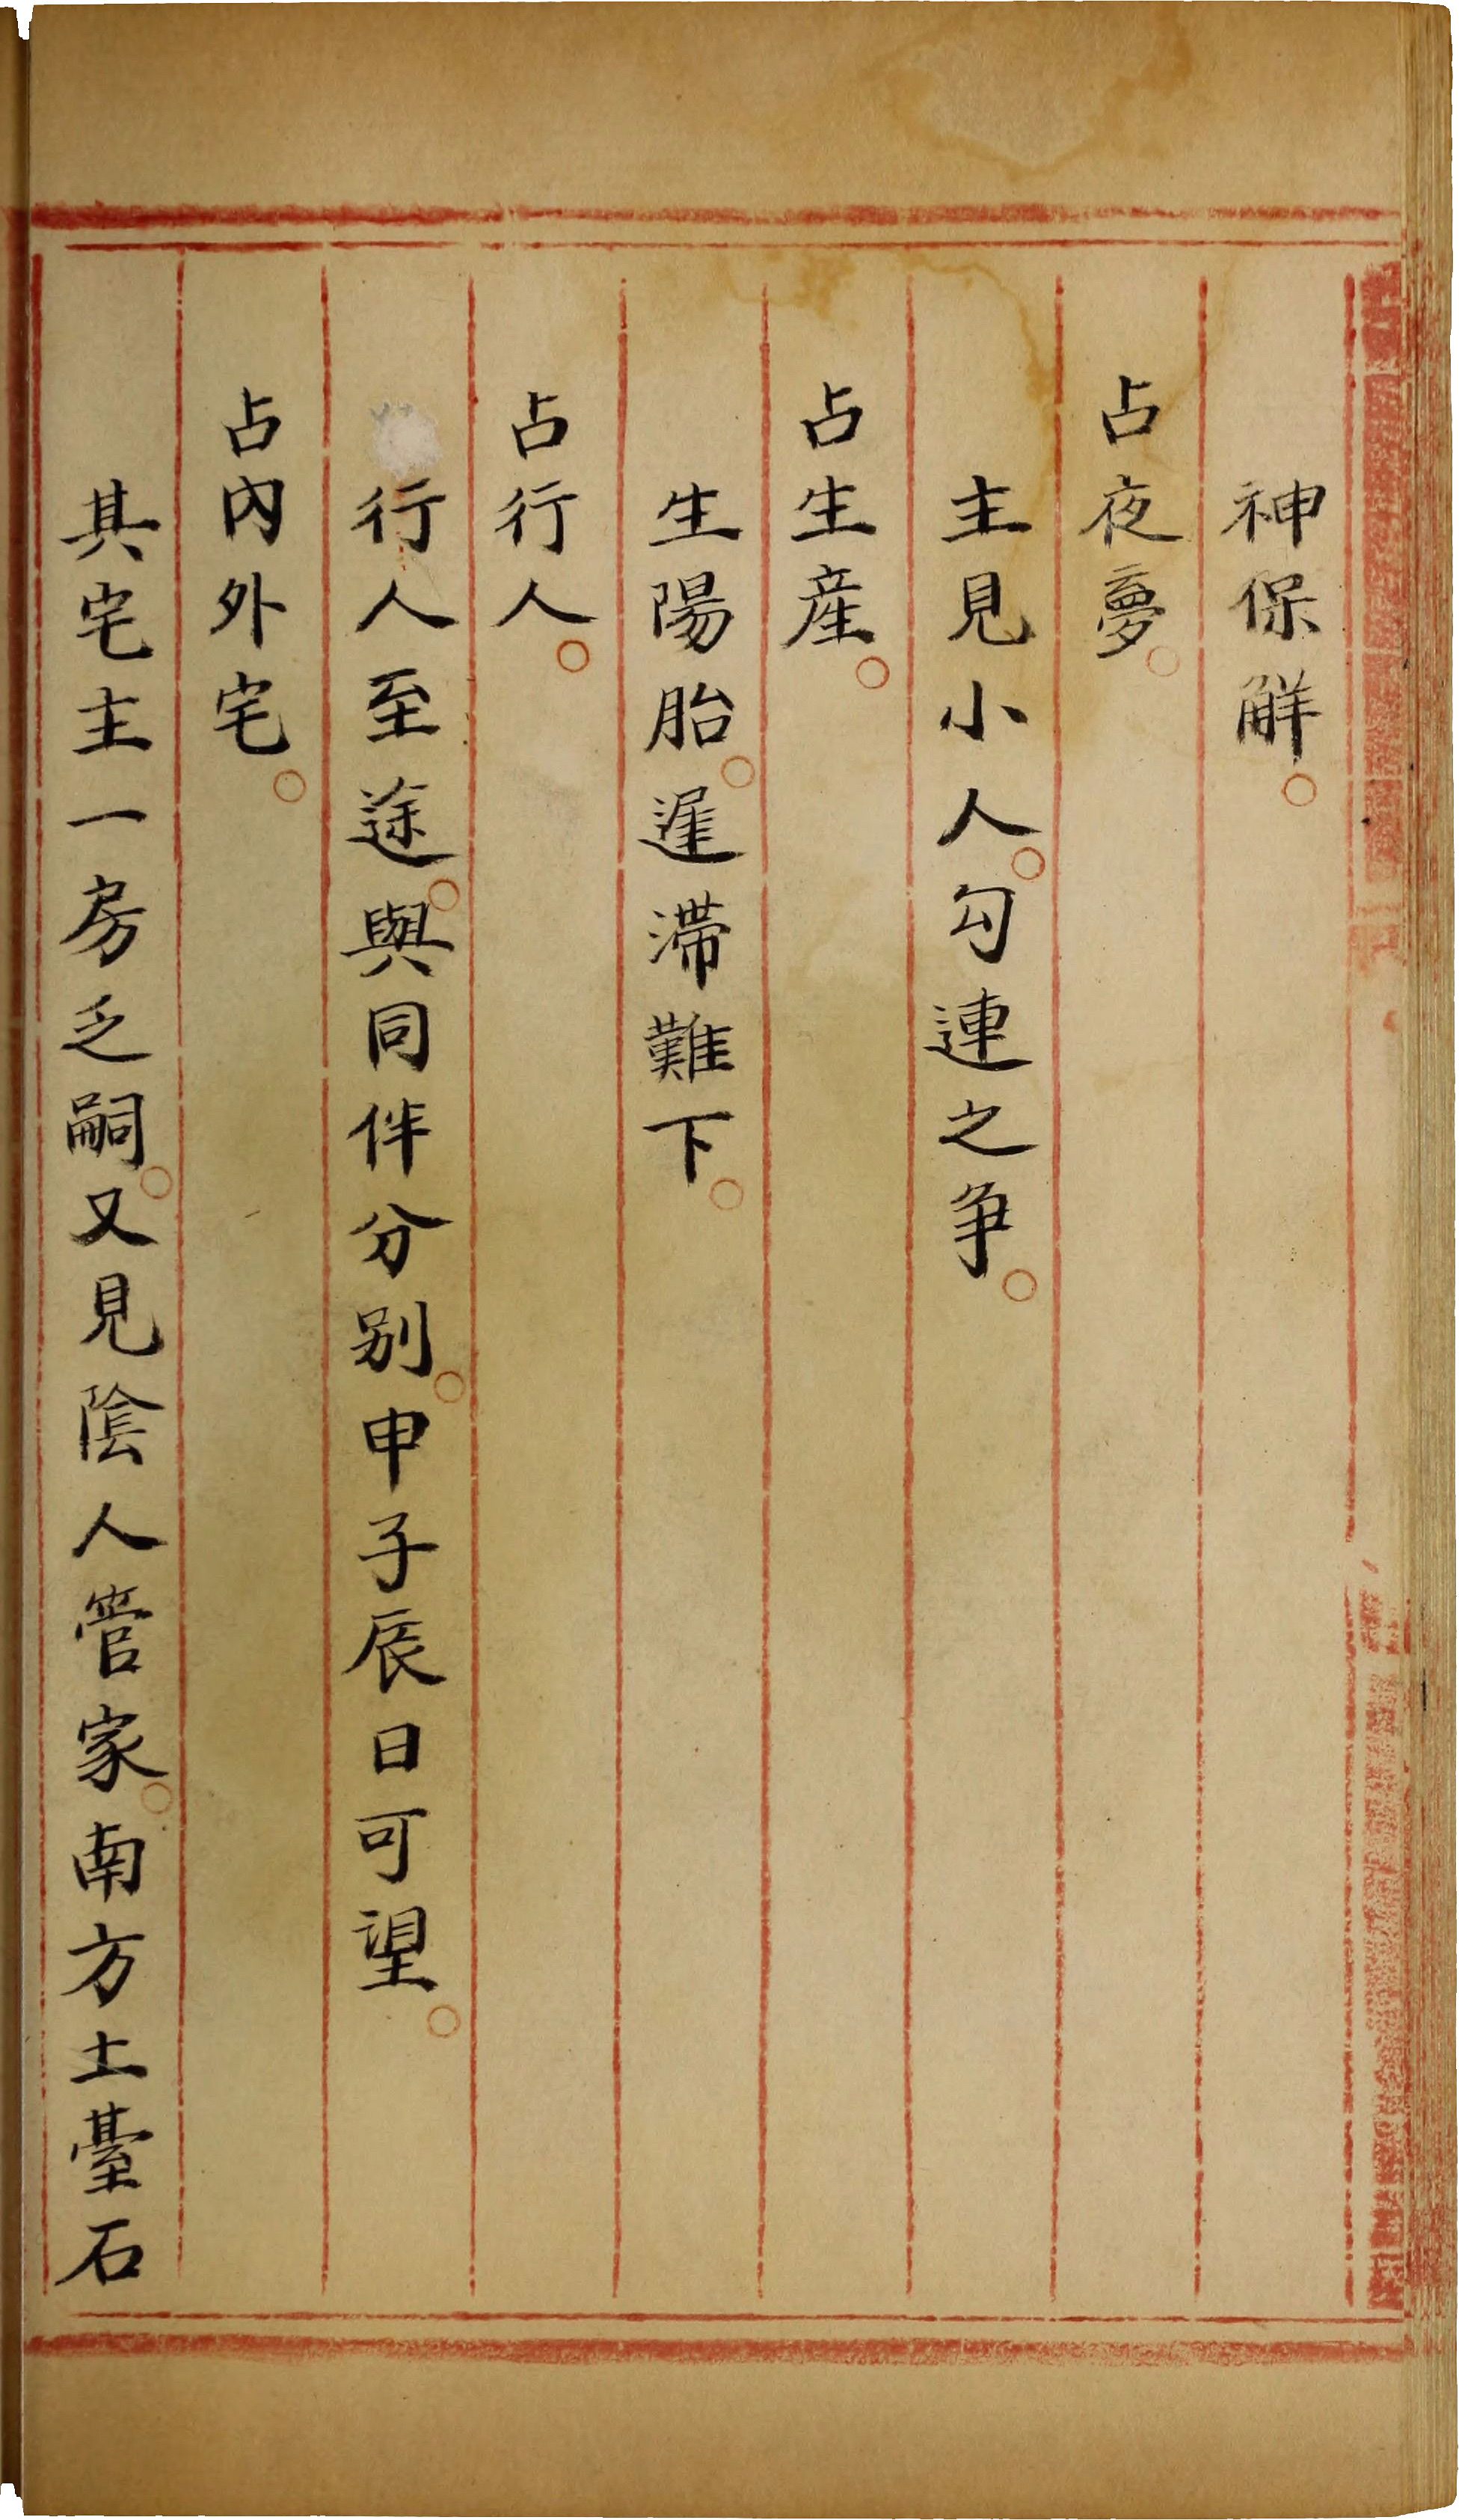 神保解。
占夜夢。
主見小人。勾連之爭。
占生產。
生陽胎。遲滯難下。
占行人。
行人至途。與同伴分别。申子辰日可望。
占內外宅。
其宅主一房乏嗣。又見陰人管家。南方土臺石